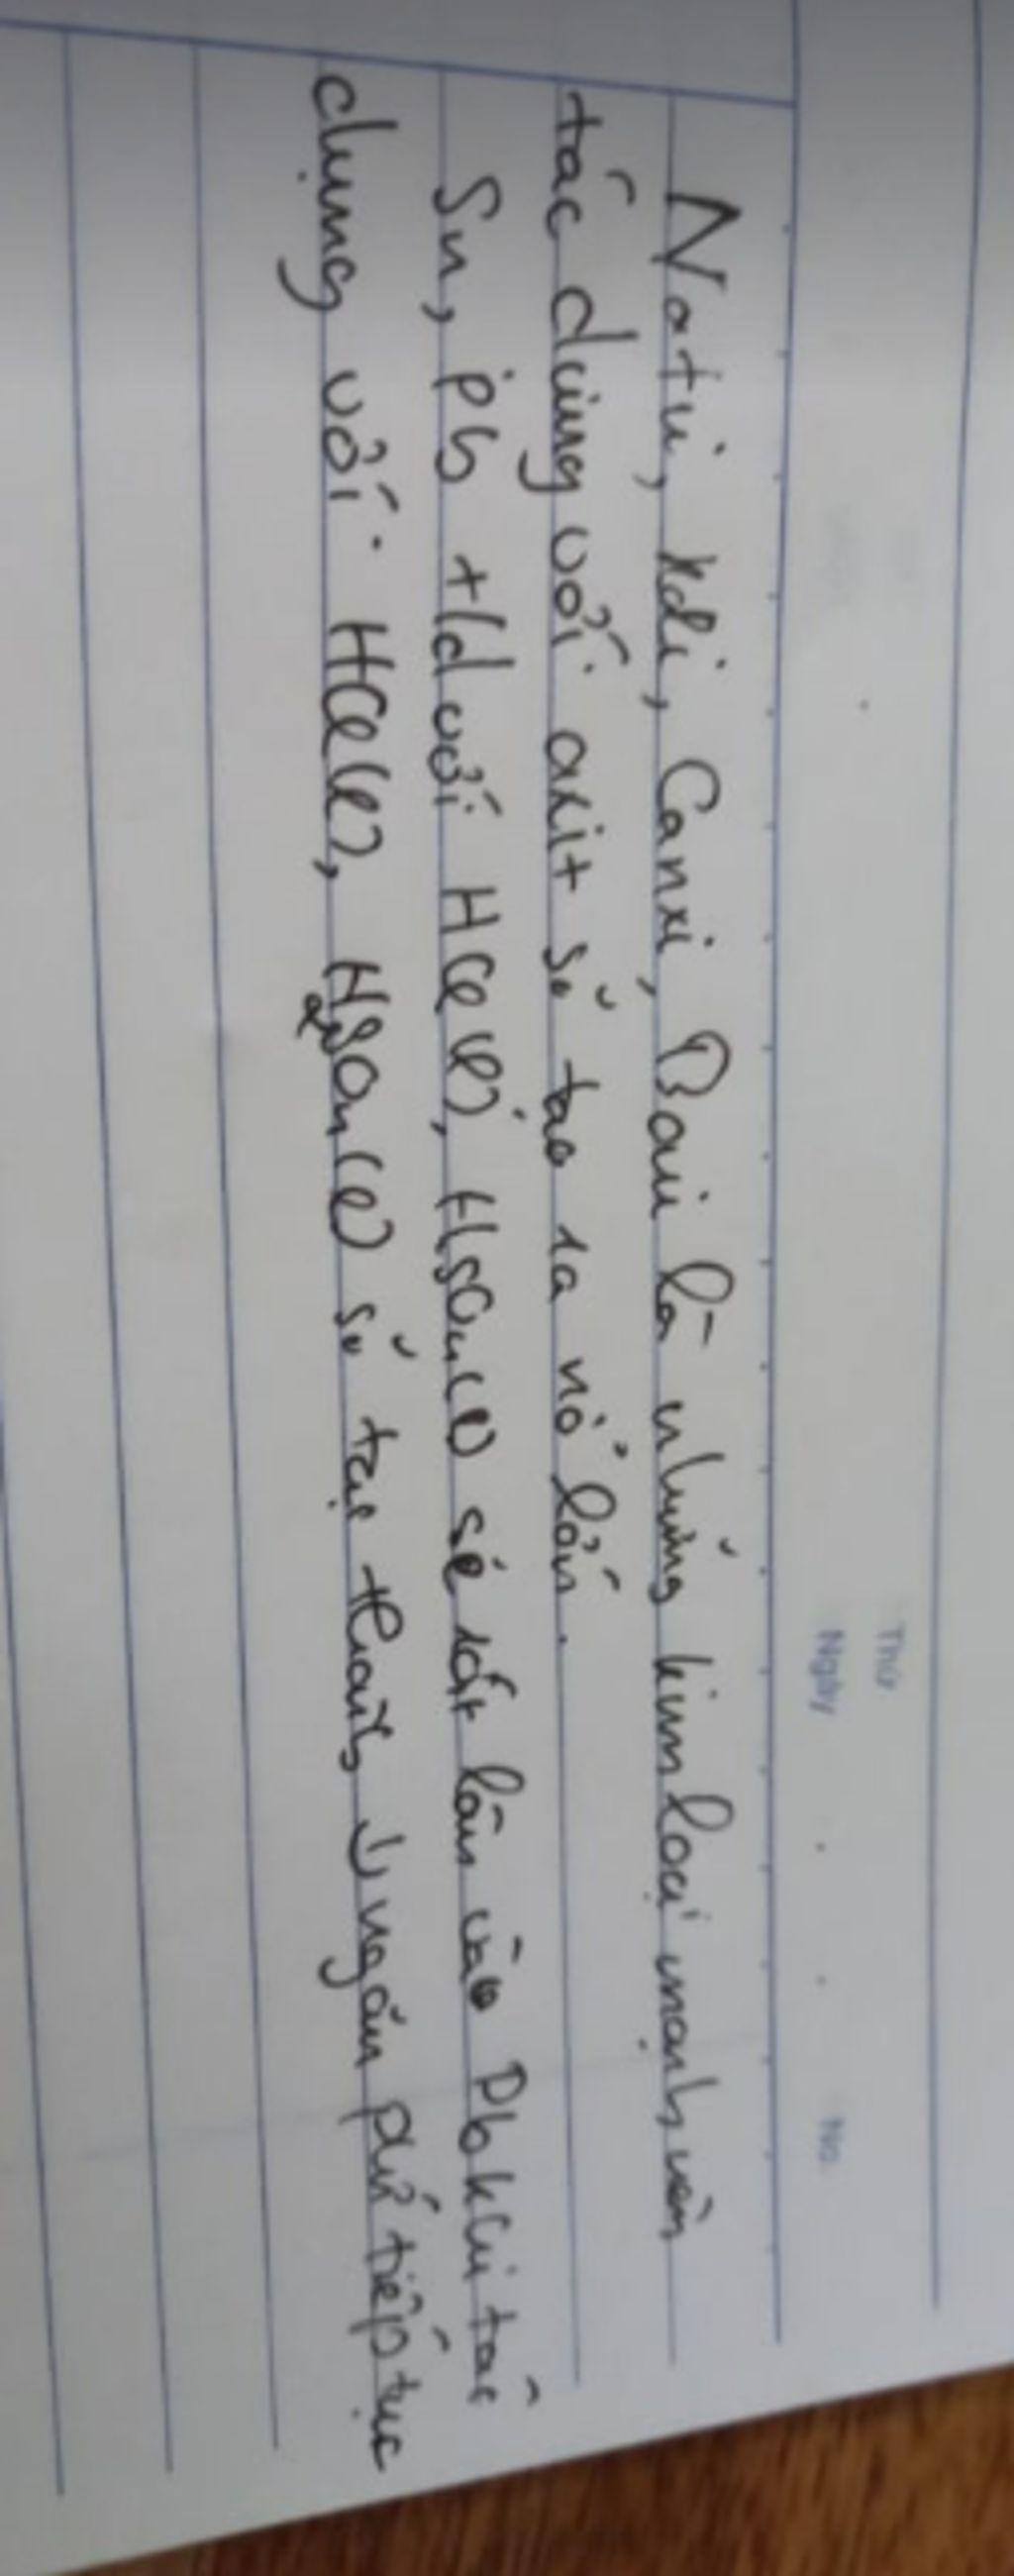 Thứ
Ngày
No.
Natri, kali, Canxi, Bari là những kim loại mạnh nên
tác dụng với axit sẽ tạo ra nổ lớn.
Sn, Pb t/d với HCl(l), H2SO4(l) sẽ rất lâu vào Pb khi tác
dụng với HCl(l), H2SO4(l) sẽ tạo thành ↓ ngăn pứ tiếp tục